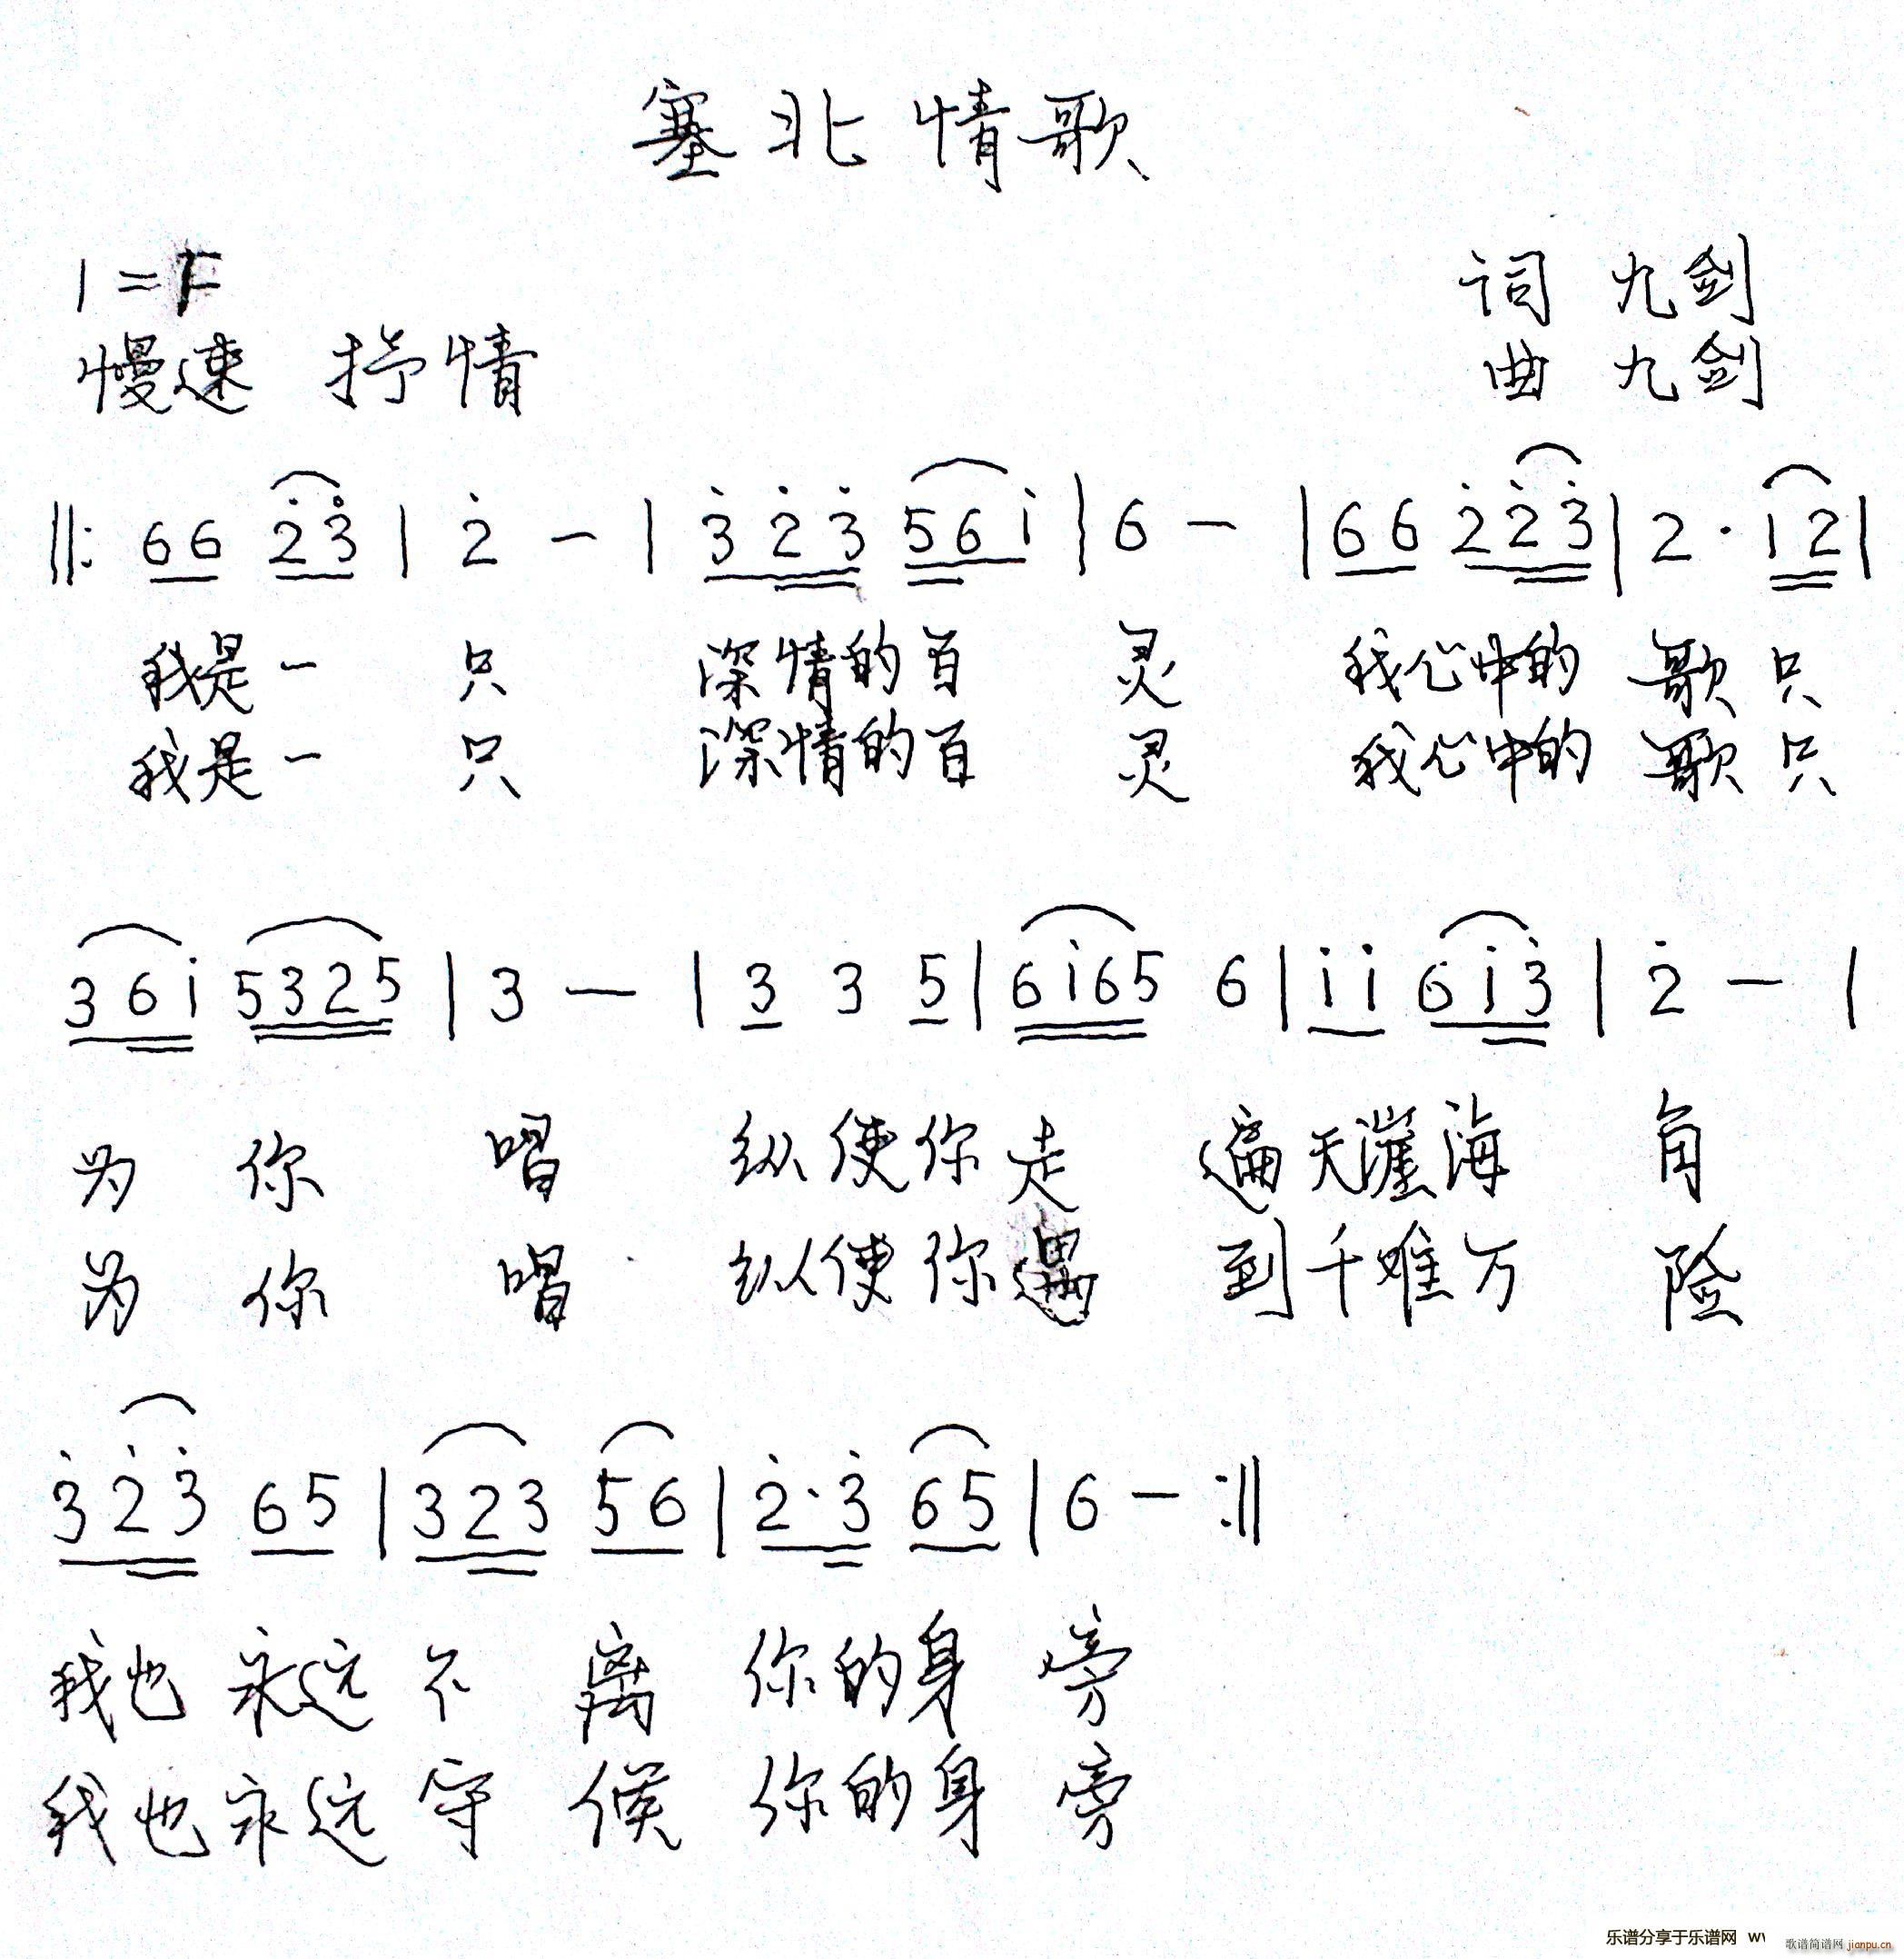 塞北情歌
1=F 词 九剑
慢速 抒情 曲 九剑
‖: 66 2̇3̇ | 2̇ - | 3̇2̇3̇ 56i̇ | 6 - | 66 2̇2̇3̇ | 2 · i̇2 |
我是一 只 深情的百 灵 我心中的 歌只
我是一 只 深情的百 灵 我心中的 歌只
36i̇ 5325 | 3 - | 3 3 5 | 6i̇65 6 | i̇i̇ 6i̇3̇ | 2̇ - |
为 你 唱 纵使你走 遍天涯海 角
为 你 唱 纵使你遇 到千难万 险
3̇2̇3̇ 65 | 323 56 | 2̇·3̇ 65 | 6 - :‖
我也永远不 离 你的身 旁
我也永远守 候 你的身 旁
乐谱分享于乐谱网 ww 歌谱简谱网 jianpu.cn